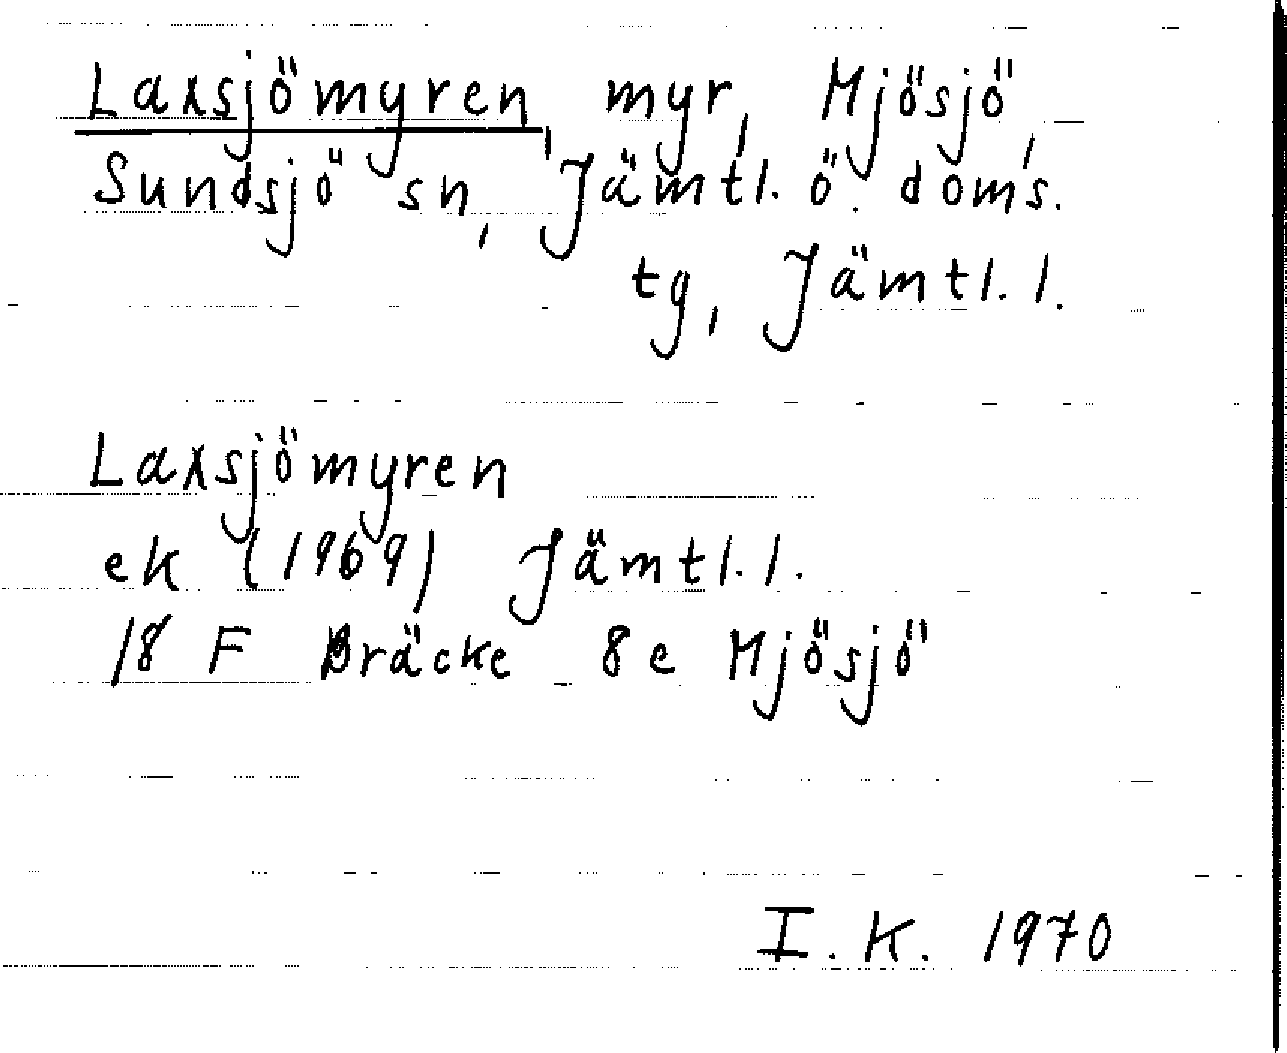 Laxsjömyren, myr, Mjösjö,
Sundsjö sn, Jämtl. ö. doms.
tg, Jämtl. l.
Laxsjömyren
ek (1969) Jämtl. l.
18 F Bräcke 8 e Mjösjö
I. K. 1970